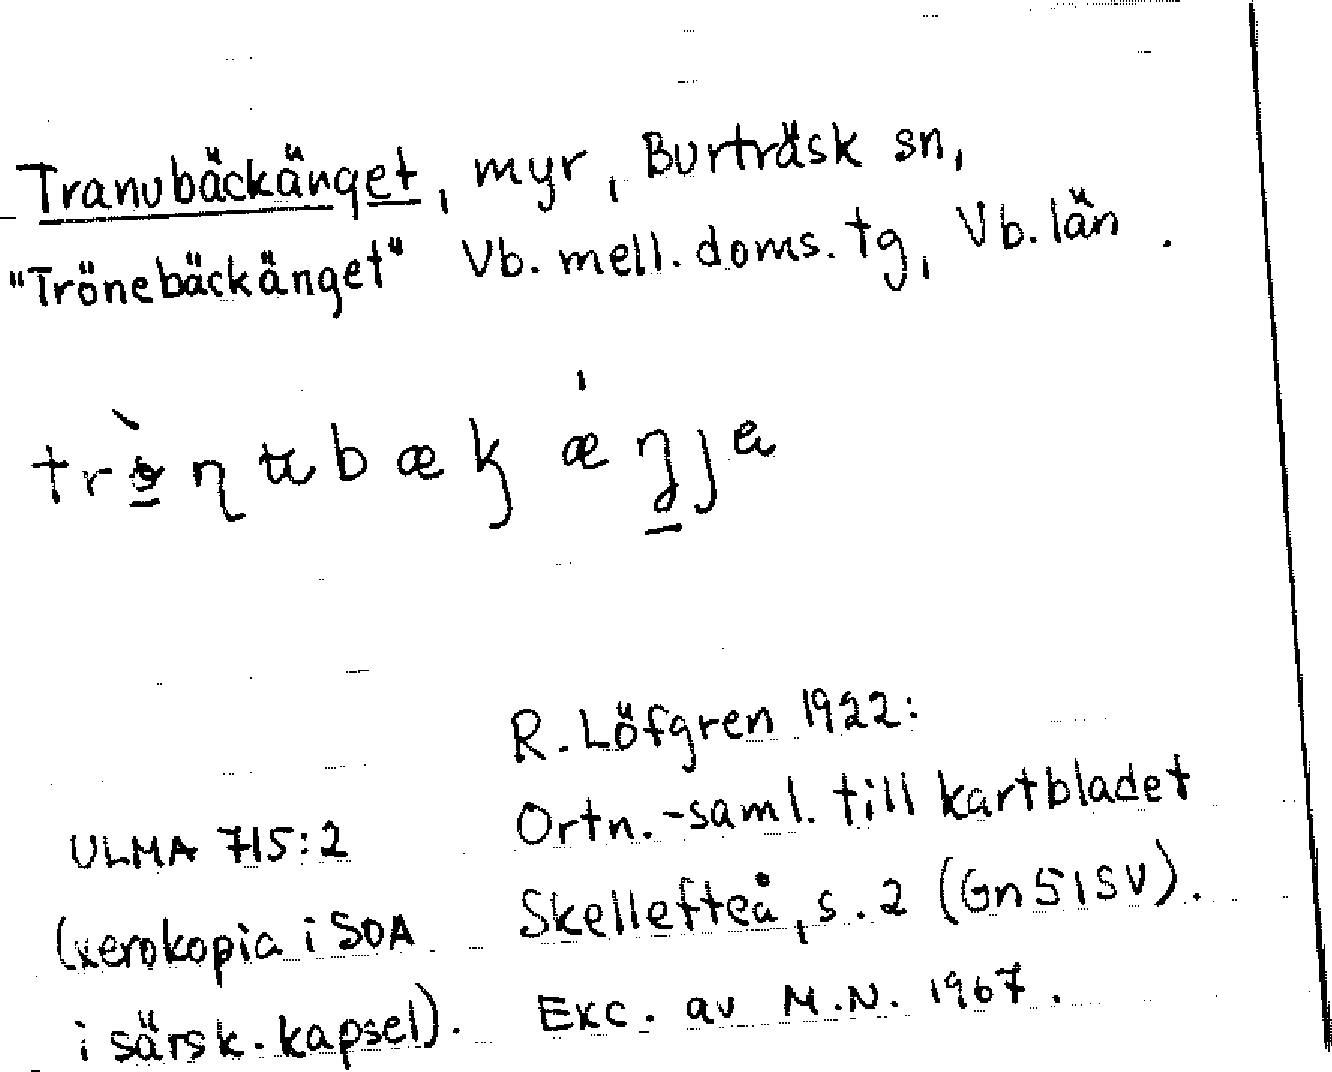 Tranubäckänget, myr, Burträsk sn,
"Trönebäckänget" Vb. mell. doms. tg, Vb. län.
R. Löfgren 1922:
Ortn.-saml. till kartbladet
Skellefteå, s. 2 (Gn 51 SV).
Exc. av M.N. 1967.
ULMA 715:2
(xerokopia i SOA
i särsk. kapsel).